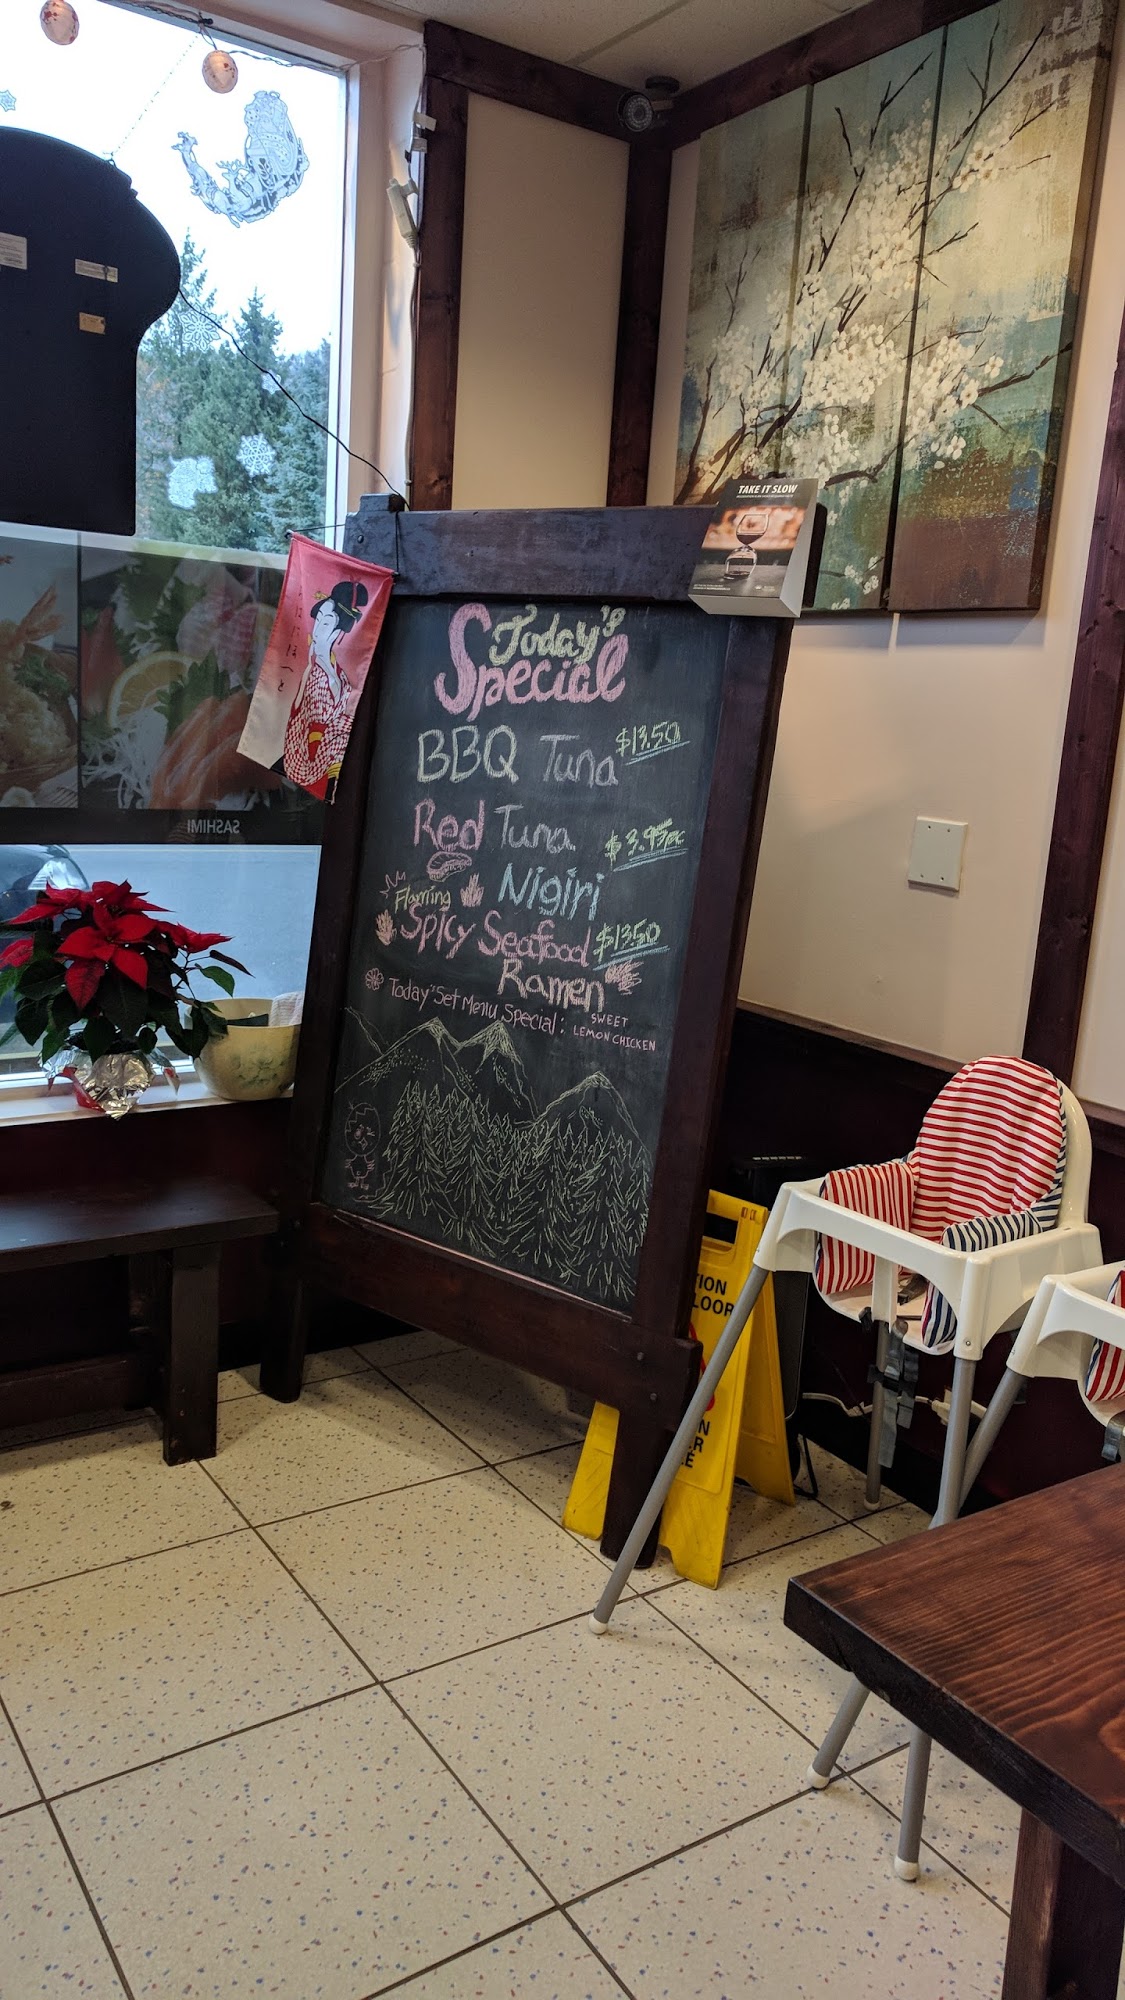 TAKE IT SLOW
Today's
Special
BBQ Tuna $13.50
Red Tuna
Nigiri $3.95pc
Flaming
Spicy Seafood $13.50
Ramen
Today"Set Menu Special: SWEET
LEMON CHICKEN
SASHIMI
TION
LOOR